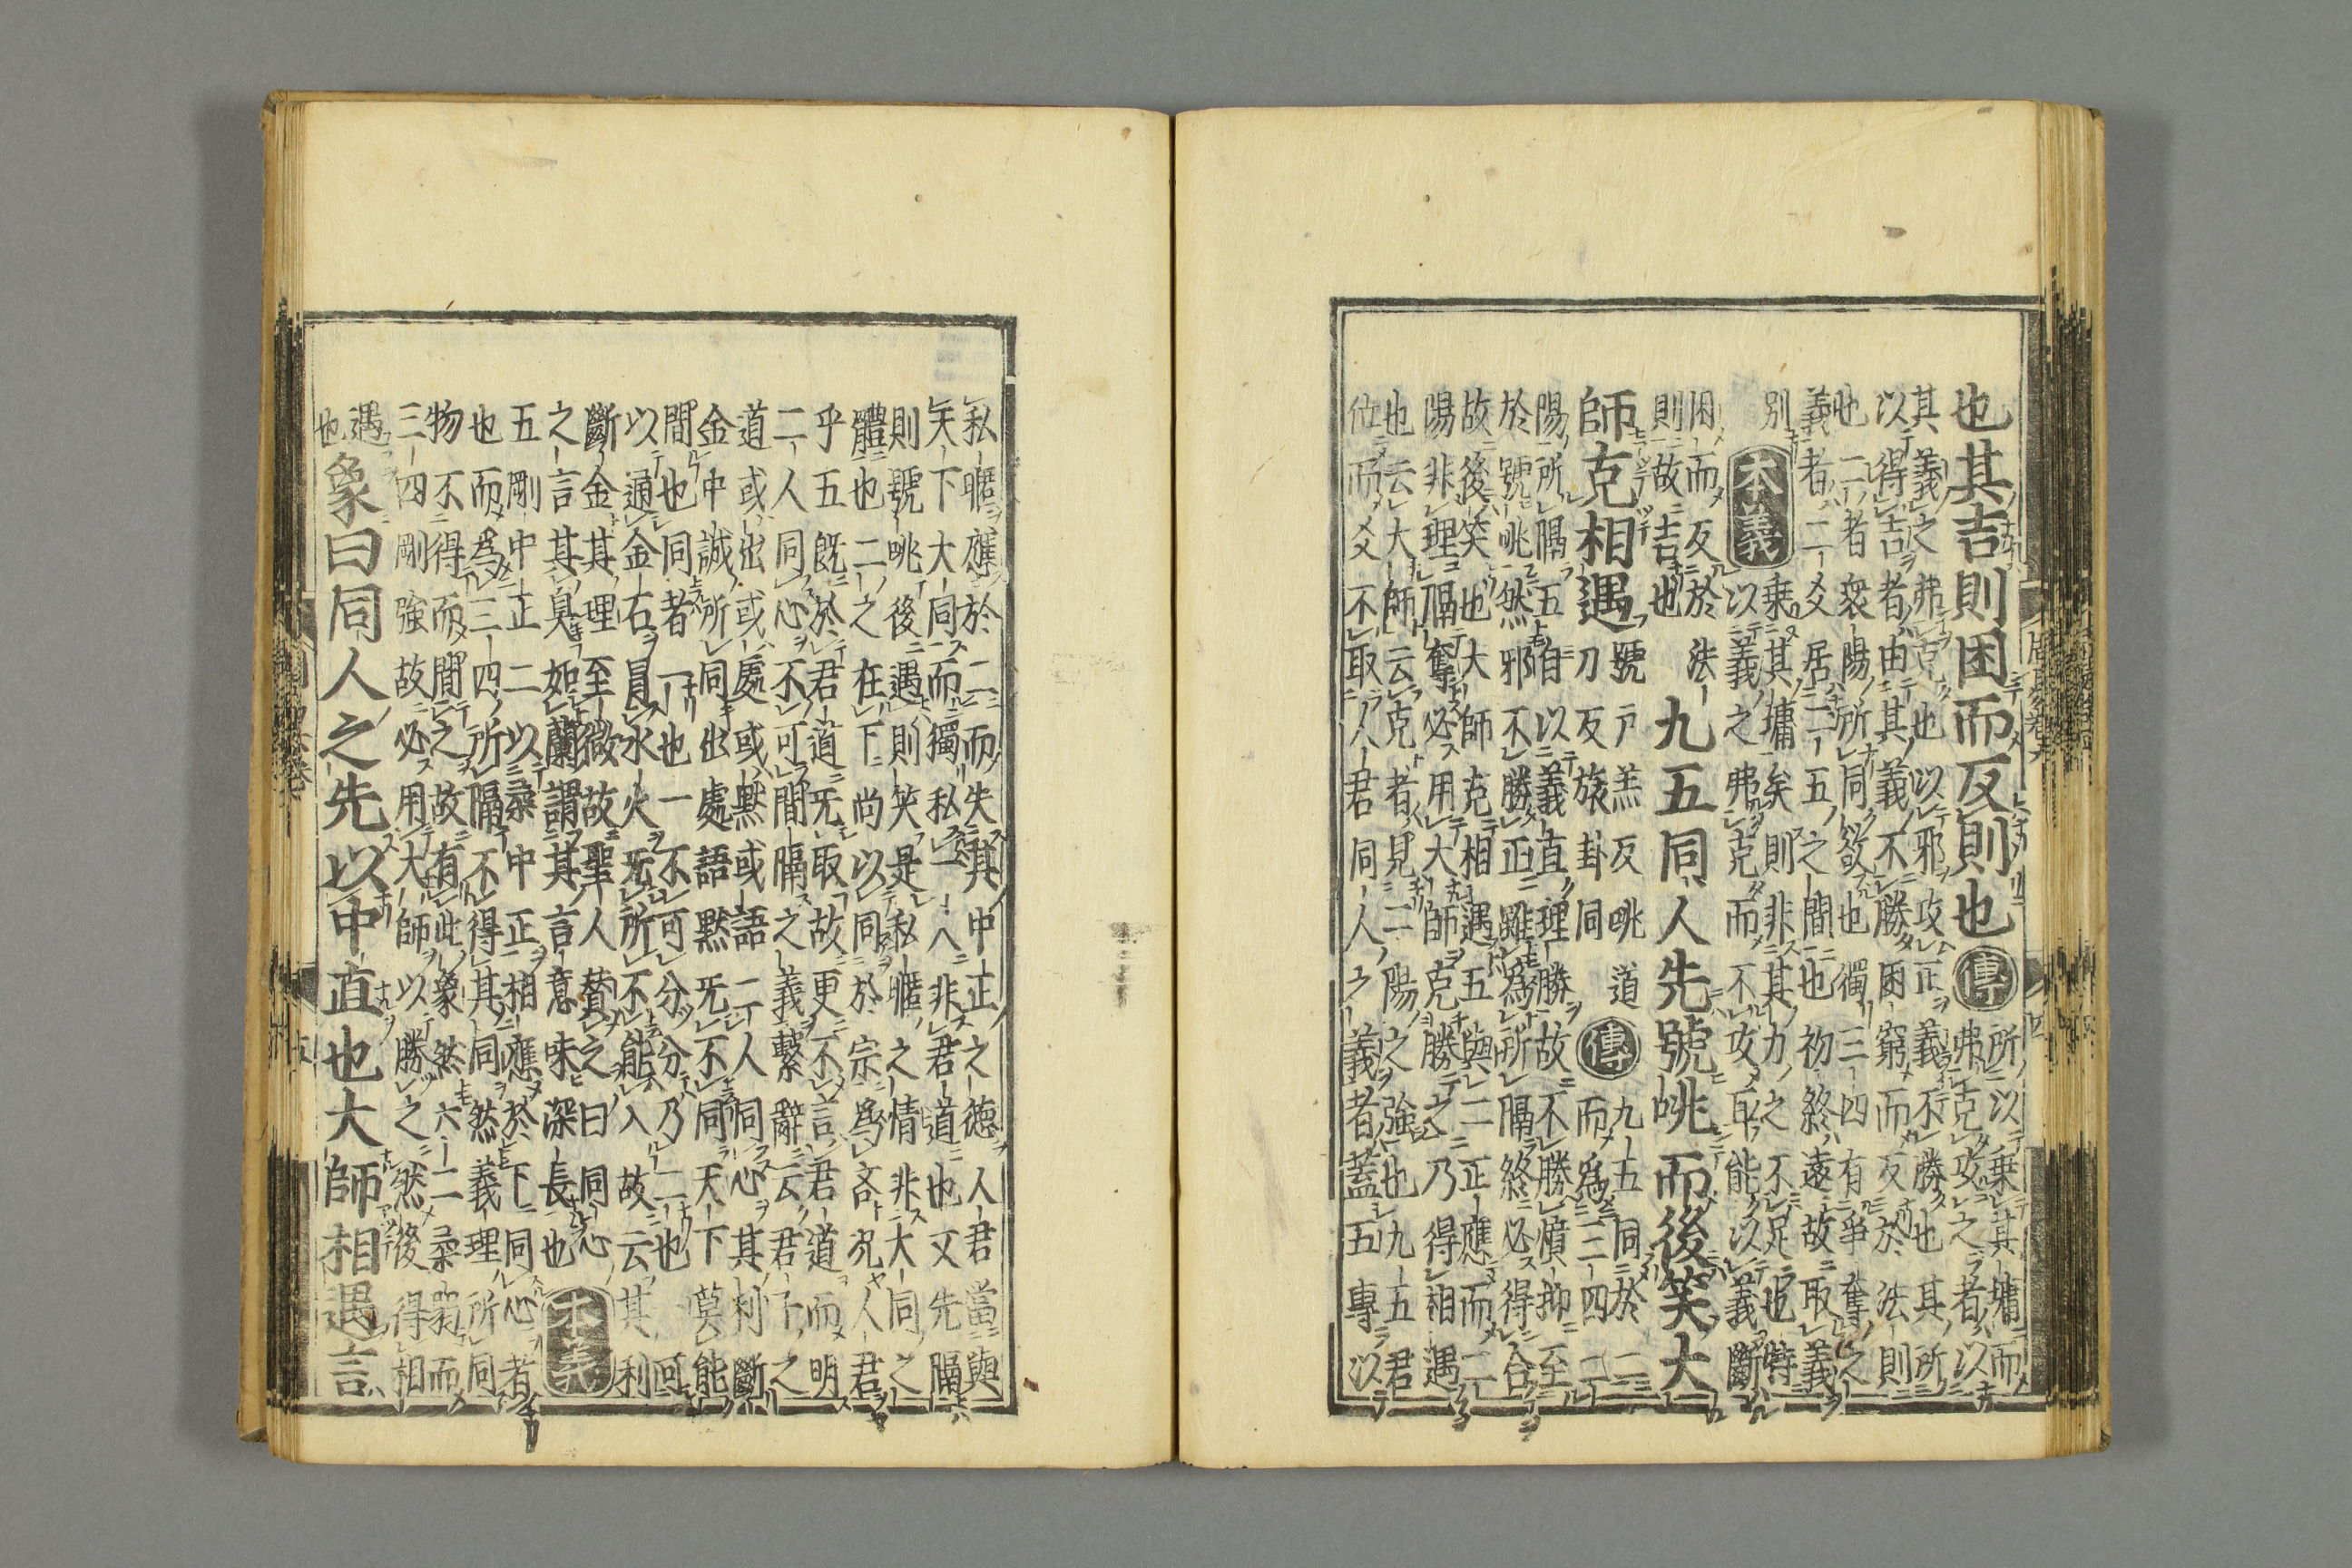 也其吉則困而反則也傳所以乗其墉而
弗克攻之者以
其義之弗克也以邪攻正義不勝也其所
以得吉者由其義不勝困窮而反於法則
也二者衆陽所同欲也獨三四有爭奪之
義者二爻居二五之間也初終遠故取義
別本義乗其墉矣則非其力之不足也特
以義之弗克而不攻耳能以義斷
困而反於法
則故吉也九五同人先號咷而後笑大
師克相遇號戸羔反咷道
刀反旅卦同傳九五同於二
而為三四二
陽所隔五自以義直理勝故不勝憤抑至
於號咷然邪不勝正雖為所隔終必得合
故後笑也大師克相遇五與二正應而二
陽非理隔奪必用大師克勝之乃得相遇
也云大師云克者見二陽之強也九五君
位而爻不取人君同人之義者蓋五專以
私暱應於二而失其中正之德人君當與
天下大同而獨私一人非君道也又先隔
則號咷後遇則笑是私暱之情非大同之
體也二之在下尚以同於宗為吝况人君
乎五既於君道无取故更不言君道而明
二人同心不可間隔之義繫辭云君子之
道或出或處或黙或語二人同心其利斷
金中誠所同出處語黙无不同天下莫能
間也同者一也一不可分分乃二也一可
以通金石冒水火无所不能入故云其利
斷金其理至微故聖人賛之曰同心
之言其臭如蘭謂其言意味深長也本義
五剛中正二以柔中正相應於下同心者
也而為三四所隔不得其同然義理所同
物不得而間之故有此象然六二柔弱而
三四剛強故必用大師以勝之然後得相
遇也象曰同人之先以中直也大師相遇言